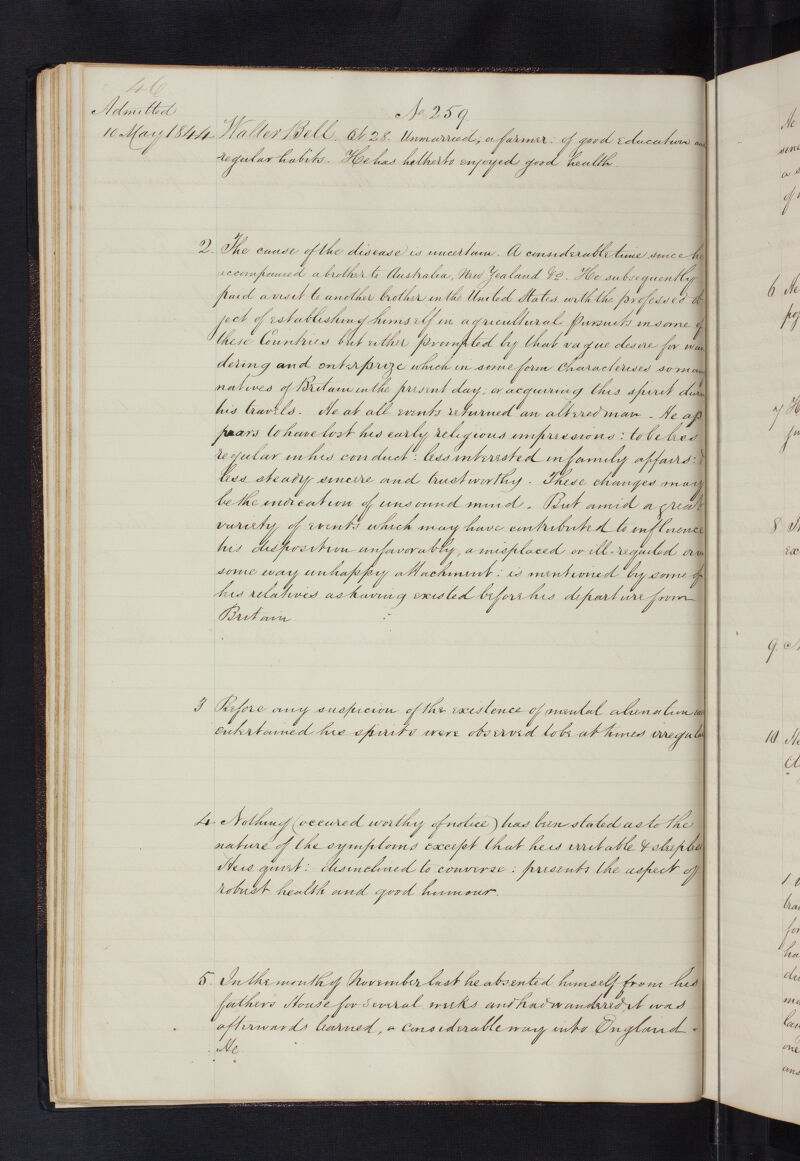 46
Admitted
No 259
10 May 1844 Walter Bell Æt 28. Unmarried, a farmer: of good education an
regular habits. He has hitherto enjoyed good health
2 The cause of the disease is uncertain. A considerable time since he
accompanied a brother to Australia, New Zealand &c. He subsequently
paid a visit to another brother in the United States with the professed ob
ject of establishing himself in agricultural pursuits in some of
these Countries but either prompted by that vague desire for wan
dering and enterprize which in some form characterises so man
natives of Britain in the present day, or acquiring this spirit durin
his travels. He at all events returned an altered man - He ap
pears to have lost his early religious impressions: to be less
regular in his conduct: less interested in family affairs: &
less steady sincere and trustworthy. These changes may
be the indication of unsound mind. But amid a great
variety of events which may have contributed to influence
his disposition unfavorably, a misplaced or ill-requited or in
some way unhappy attachment: is mentioned by some of
his relatives as having existed before his departure from
Britain
3 Before any suspicion of the existence of mental alienation was
entertained his spirits were observed to be at times irregular
4 Nothing (occured worthy of notice) has been stated as to the
nature of the symptoms except that he is irritable & sleepless
He is quiet: disinclined to converse: presents the aspect of
robust health and good humour.
5. In the month of November last he absented himself from his
father's House for several weeks and had wandered it was
afterwards learned, a considerable way into England -
He
6
7
8
9
10